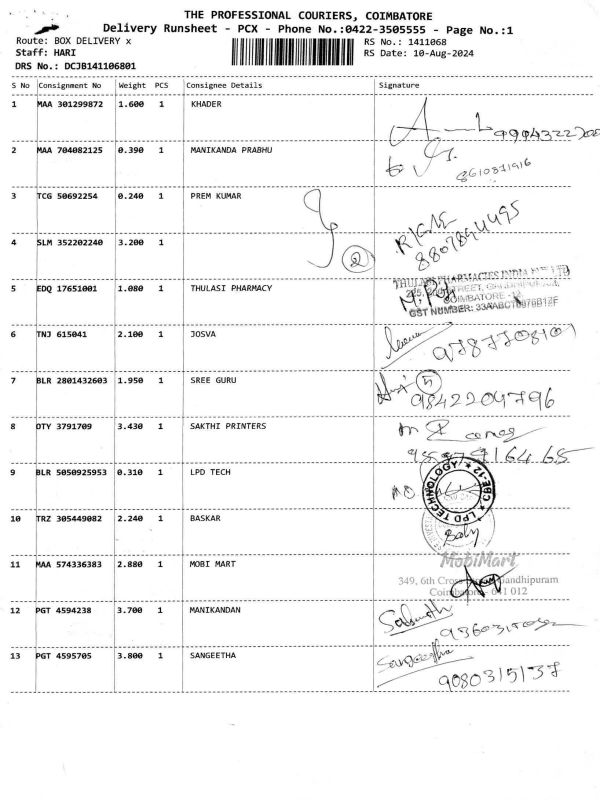 THE PROFESSIONAL COURIERS, COIMBATORE
Delivery Runsheet - PCX - Phone No.:0422-3505555 - Page No.:1
Route: BOX DELIVERY x
RS No.: 1411068
Staff: HARI
RS Date: 10-Aug-2024
DRS No.: DCJB141106801
S No Consignment No Weight PCS Consignee Details Signature
1 MAA 301299872 1.600 1 KHADER
2 MAA 704082125 0.390 1 MANIKANDA PRABHU
8610871916
3 TCG 50692254 0.240 1 PREM KUMAR
8807894495
4 SLM 352202240 3.200 1
2
5 EDQ 17651001 1.080 1 THULASI PHARMACY
THULASI PHARMACIES INDIA
COIMBATORE
GST NUMBER:
6 TNJ 615041 2.100 1 JOSVA
7 BLR 2801432603 1.950 1 SREE GURU
9842204796
8 OTY 3791709 3.430 1 SAKTHI PRINTERS
9 BLR 5050925953 0.310 1 LPD TECH
LPD TECHNOLOGY CBE-12
10 TRZ 305449082 2.240 1 BASKAR
Baby
11 MAA 574336383 2.880 1 MOBI MART
MobiMart
349, 6th Cross Gandhipuram
Coimbatore - 641 012
12 PGT 4594238 3.700 1 MANIKANDAN
13 PGT 4595705 3.800 1 SANGEETHA
Sangeetha
9080315137